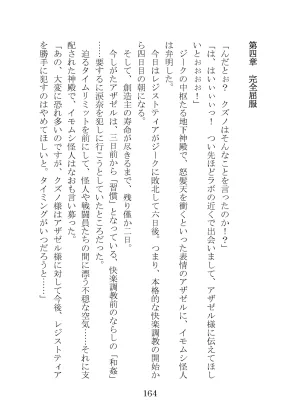 第四章　完全屈服
「んだとぉ？　クズノはそんなことを言ったのか！？」
「は、はいいいいっ！　つい先ほどラボの近くで出会いまして、アザゼル様に伝えてほし
いとおおおお！」
ジークの中枢たる地下神殿で、怒髪天を衝くといった表情のアザゼルに、イモムシ怪人
は弁明した。
今日はレジスティアがジークに敗北して六日後。つまり、本格的な快楽調教の開始か
ら四日目の朝になる。
そして、創造主の寿命が尽きるまで、残り僅か二日。
今しがたアザゼルは、三日前から「習慣」となっている、快楽調教前のならしの「和姦」
……要するに涙奈を犯しに行こうとしていたところだった。
迫るタイムリミットを前にして、怪人や戦闘員たちの間に漂う不穏な空気……それに支
配された神殿で、イモムシ怪人はなおも言い募った。
「あの、大変に恐れ多いのですが、クズノ様はアザゼル様に対して今後、レジスティア
を勝手に犯すのはやめてほしいと。タイミングがいつだろうと……」
164